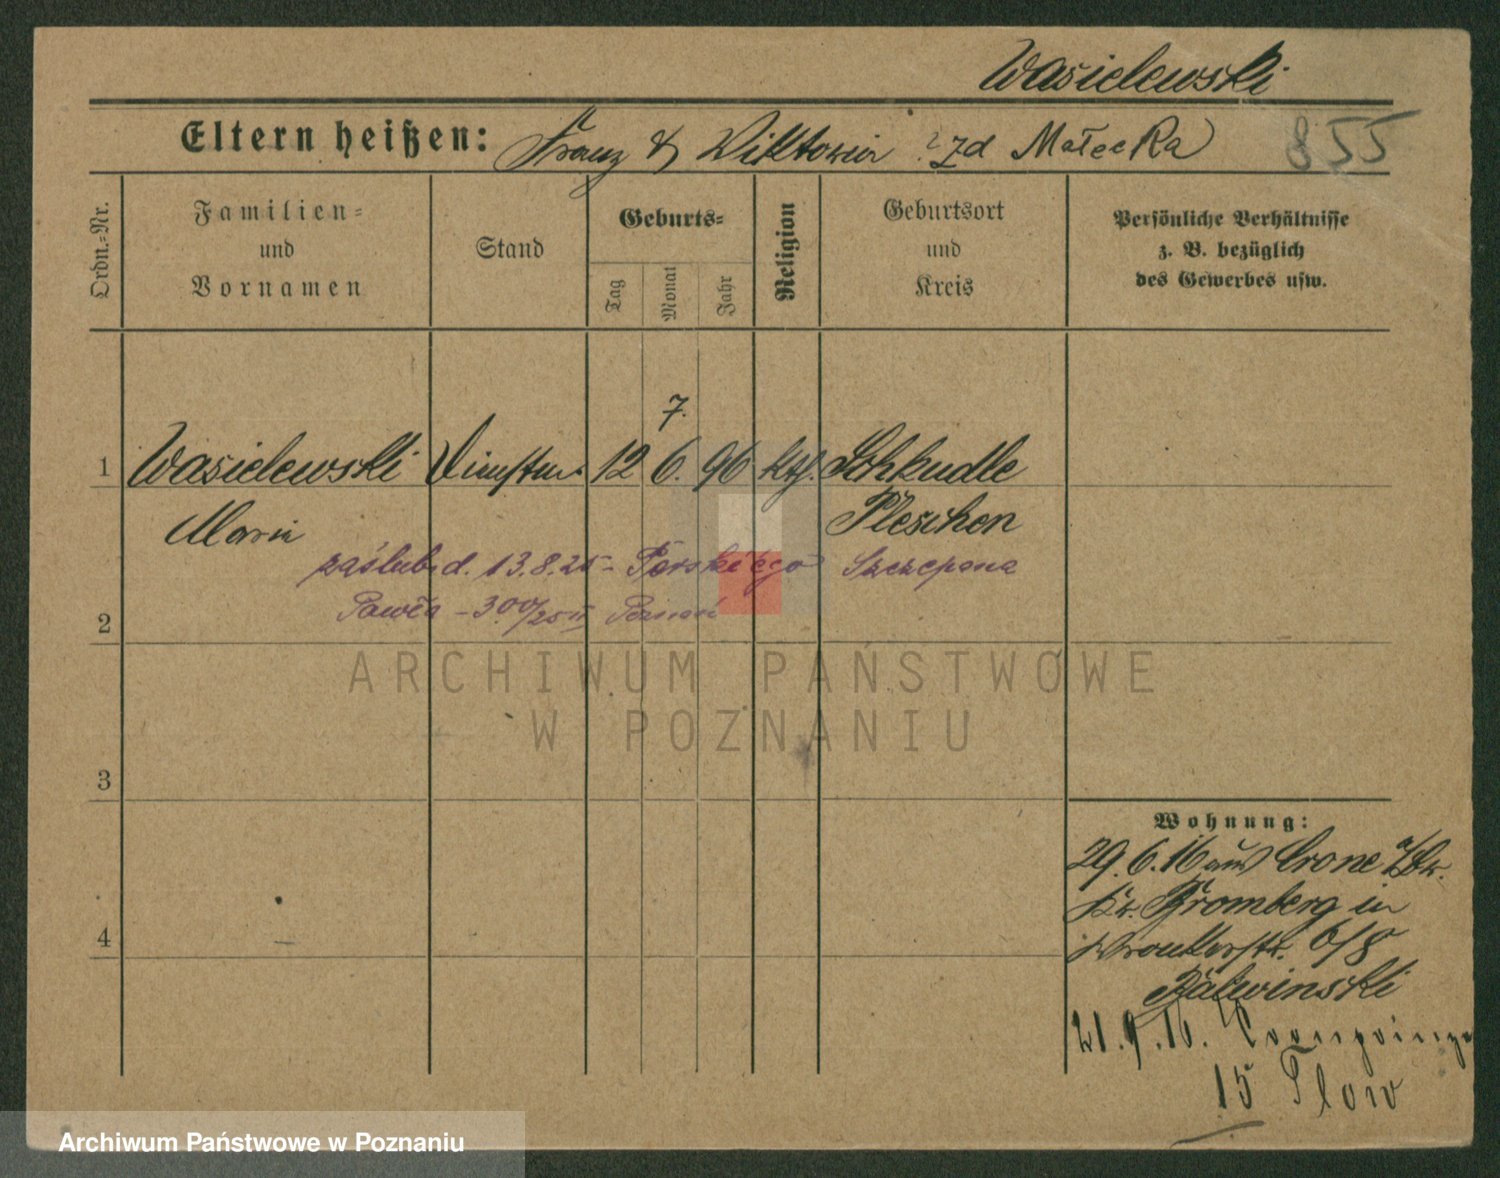 Wasielewski
Eltern heißen: Franz & Wiktoria zd Małecka 855
Ordn.=Nr.
Familien=
und
Vornamen
Stand
Geburts=
Tag
Monat
Jahr
Religion
Geburtsort
und
Kreis
Persönliche Verhältnisse
z. B. bezüglich
des Gewerbes usw.
7.
1 Wasielewski 12 6. 96 kth. Schkudle
Maria Pleschen
zaślub. d. 13.8.25 - Szczepana
2 Pawła - 300/25 II Poznań
ARCHIWUM PAŃSTWOWE
W POZNANIU
3
Wohnung:
29.6.16 aus Crone a/Br.
Kr. Bromberg in
4 6/8
21.9.16.
15
Archiwum Państwowe w Poznaniu